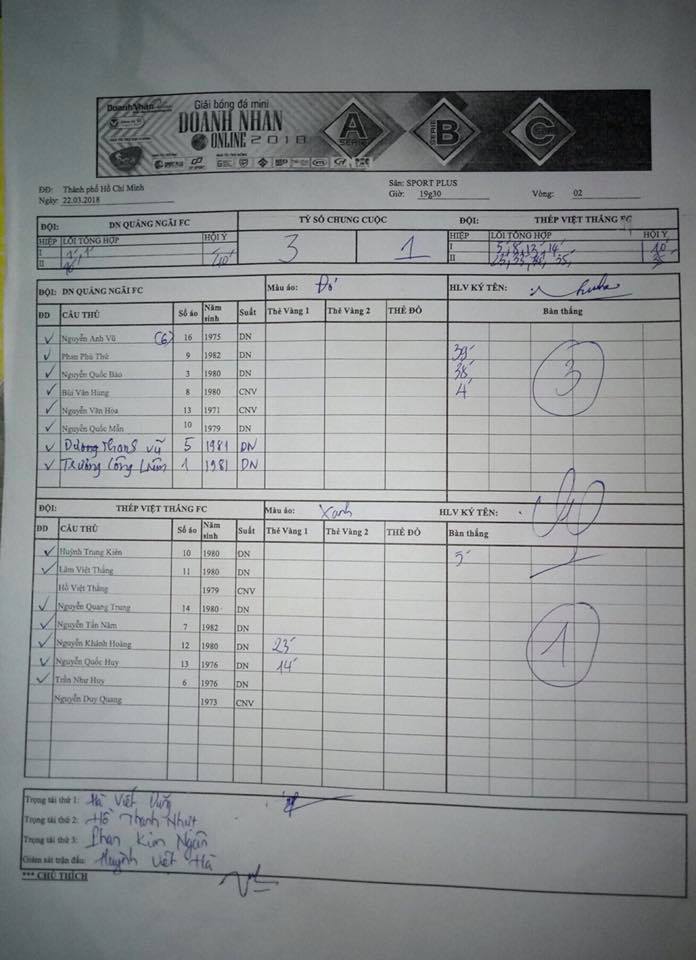 DoanhNhan
Giải bóng đá mini
DOANH NHAN
ONLINE 2018
A SERIE
SERIE B
SERIE C
ĐĐ: Thành phố Hồ Chí Minh Sân: SPORT PLUS
Ngày: 22.03.2018 Giờ: 19g30 Vòng: 02
ĐỘI: DN QUẢNG NGÃI FC TỶ SỐ CHUNG CUỘC ĐỘI: THÉP VIỆT THẮNG FC
HIỆP LỖI TỔNG HỢP HỘI Ý 3 1 HIỆP LỖI TỔNG HỢP HỘI Ý
I I 5', 8', 13', 14' 10'
II II
ĐỘI: DN QUẢNG NGÃI FC Màu áo: Đỏ HLV KÝ TÊN:
ĐD CẦU THỦ Số áo Năm sinh Suất Thẻ Vàng 1 Thẻ Vàng 2 THẺ ĐỎ Bàn thắng
Nguyễn Anh Vũ (6) 16 1975 DN
Phan Phú Thứ 9 1982 DN 39'
Nguyễn Quốc Bảo 3 1980 DN 38' 3
Bùi Văn Hùng 8 1980 CNV 4'
Nguyễn Văn Hòa 13 1971 CNV
Nguyễn Quốc Mẫn 10 1979 DN
Dương Thanh Vũ 5 1981 DN
Trương Công 1 1981 DN
ĐỘI: THÉP VIỆT THẮNG FC Màu áo: Xanh HLV KÝ TÊN:
ĐD CẦU THỦ Số áo Năm sinh Suất Thẻ Vàng 1 Thẻ Vàng 2 THẺ ĐỎ Bàn thắng
Huỳnh Trung Kiên 10 1980 DN 5'
Lâm Việt Thắng 11 1980 DN
Hồ Việt Thắng 1979 CNV
Nguyễn Quang Trung 14 1980 DN
Nguyễn Tấn Năm 7 1982 DN
Nguyễn Khánh Hoàng 12 1980 DN 23' 1
Nguyễn Quốc Huy 13 1976 DN 14'
Trần Như Huy 6 1976 DN
Nguyễn Duy Quang 1973 CNV
Trọng tài thứ 1: Hà Viết Dũng
Trọng tài thứ 2: Hồ Thanh Nhựt
Trọng tài thứ 3: Phan Kim Ngân
Giám sát trận đấu: Huỳnh Viết Hà
*** CHÚ THÍCH